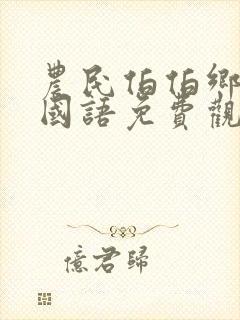 農民伯伯鄉
國語免費觀
憶君歸